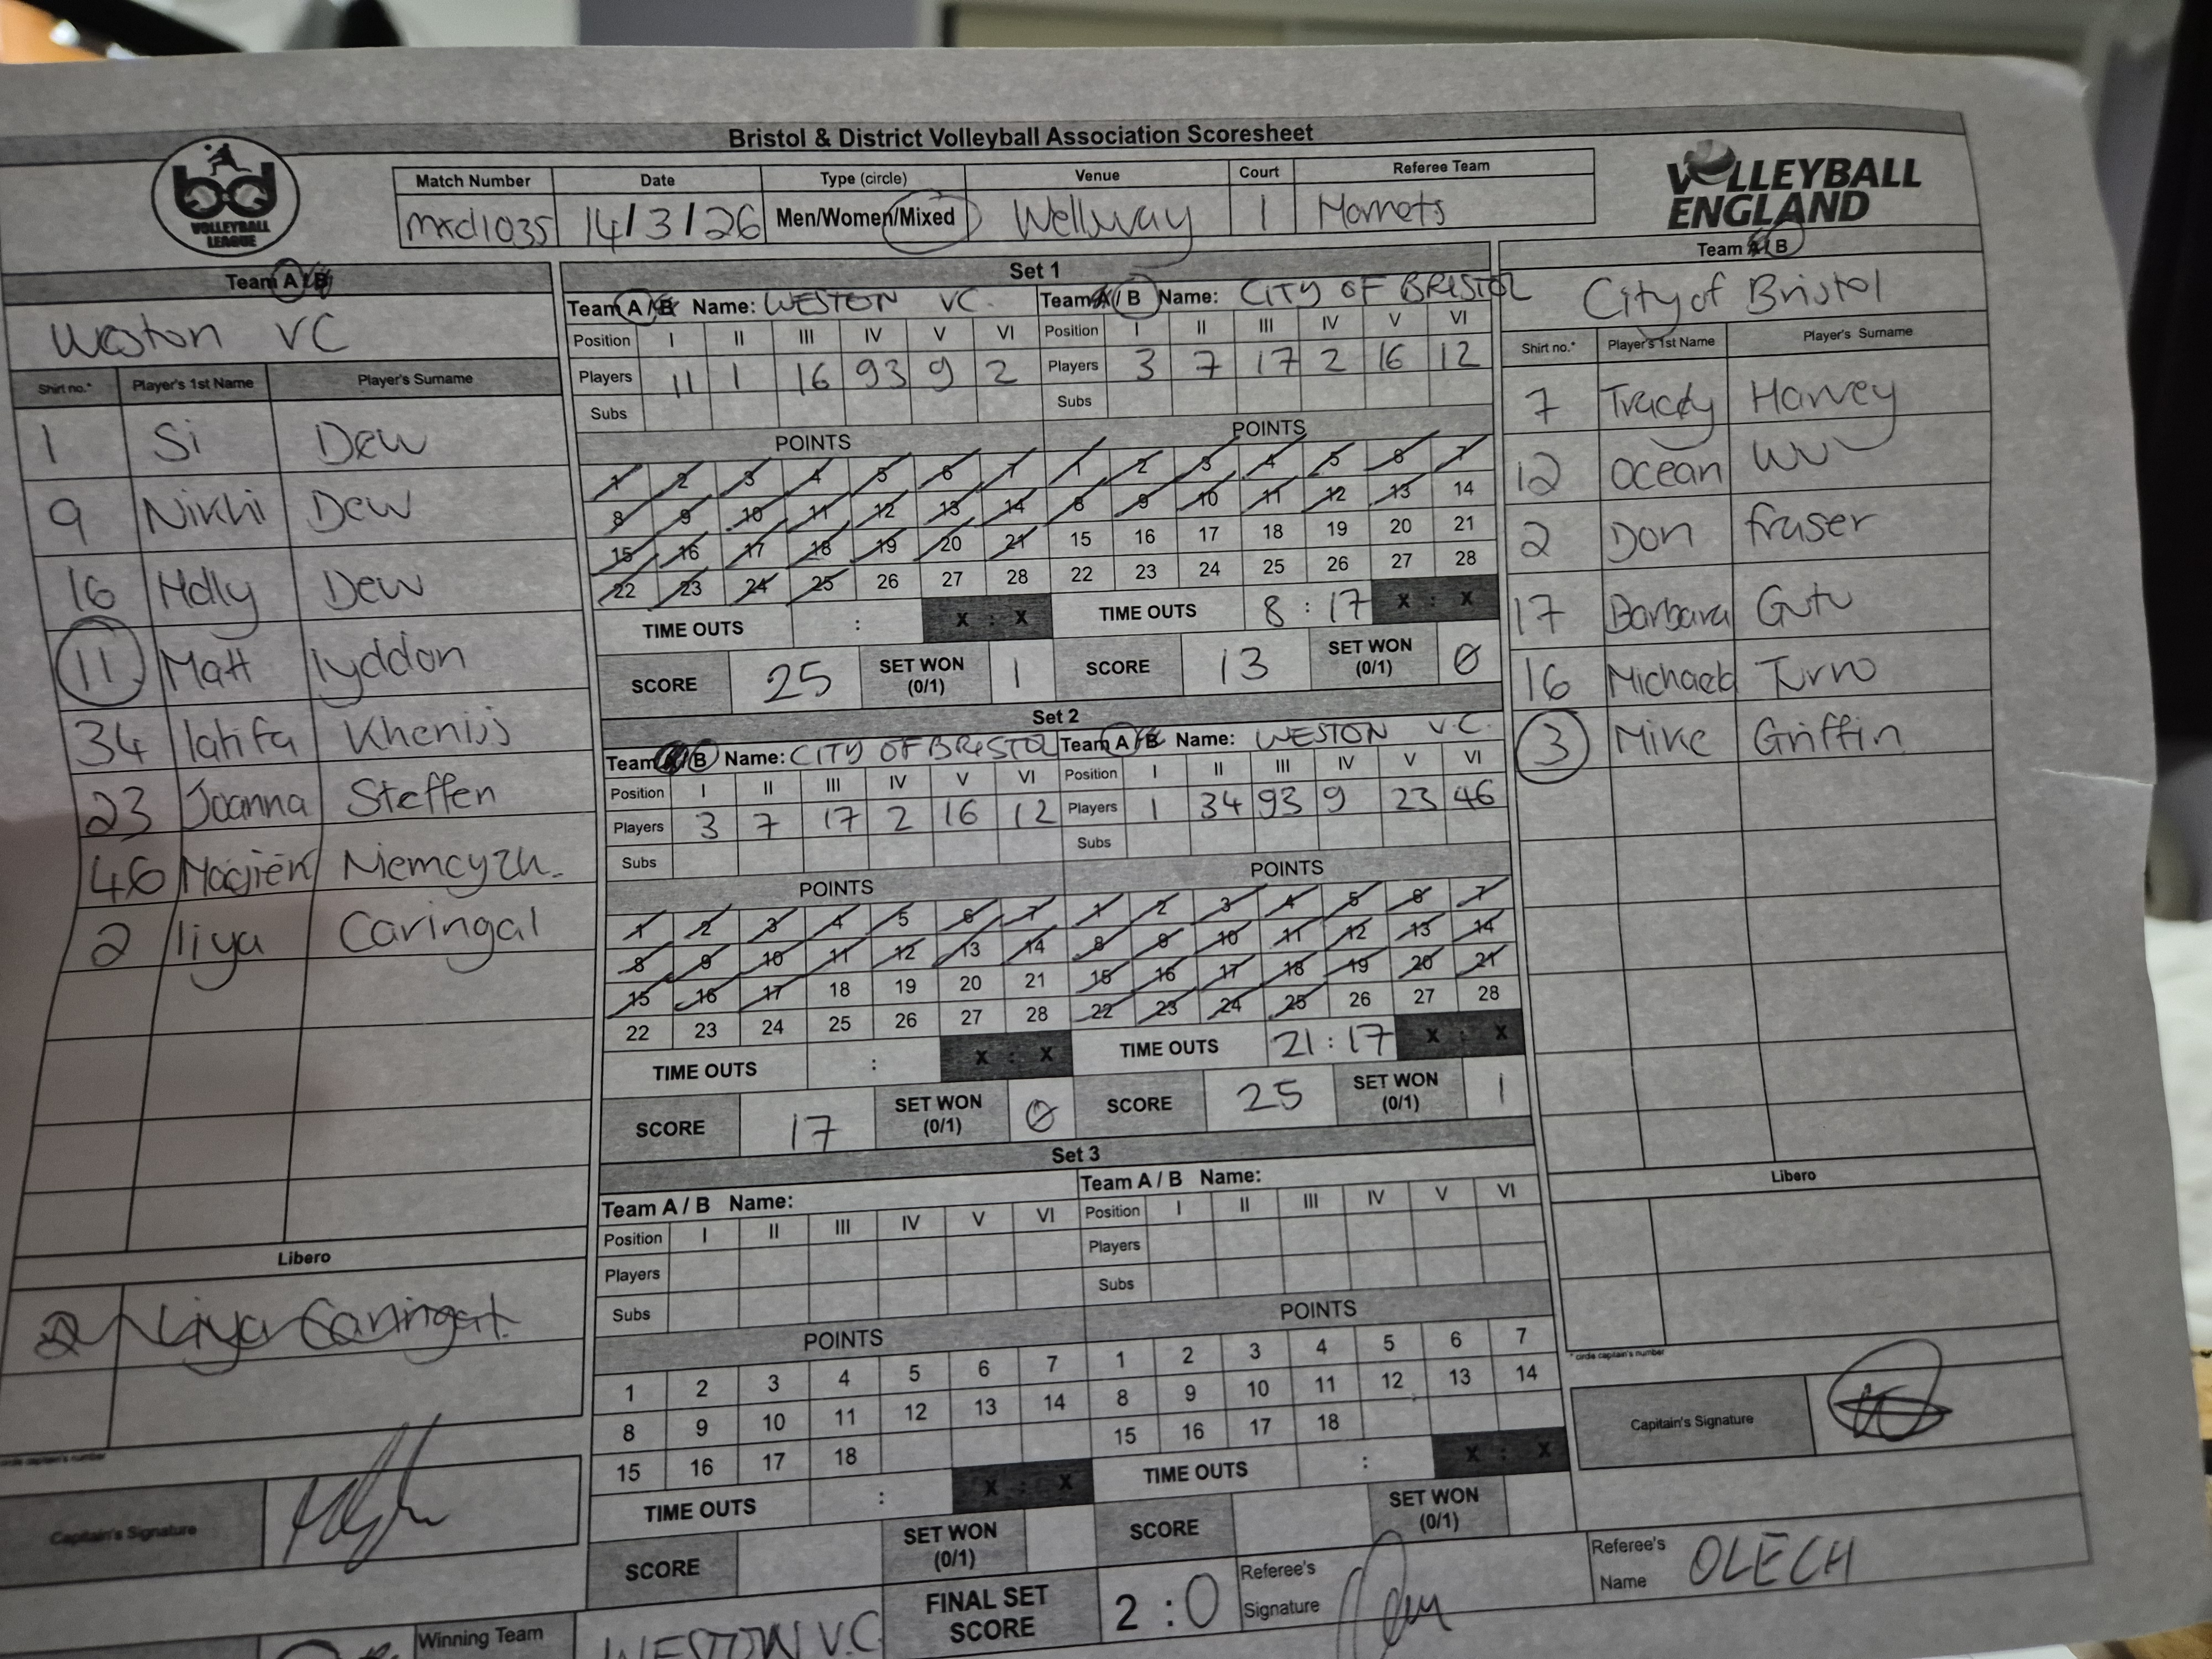 Bristol & District Volleyball Association Scoresheet
bd
VOLLEYBALL
LEAGUE
Match Number Date Type (circle) Venue Court Referee Team
mxd1035 14/3/26 Men/Women/Mixed Wellway 1 Hornets
VOLLEYBALL
ENGLAND
Team A / B
Weston VC
Shirt no.* Player's 1st Name Player's Surname
1 Si Dew
9 Nikhi Dew
16 Holly Dew
11 Matt lyddon
34 latifa Khenijj
23 Joanna Steffen
46
2 liya Caringal
Libero
2 Liya Caringal
circle captain's number
Captain's Signature
Set 1
Team A / B Name: WESTON VC.
Position I II III IV V VI
Players 11 1 16 93 9 2
Subs
POINTS
1 2 3 4 5 6 7
8 9 10 11 12 13 14
15 16 17 18 19 20 21
22 23 24 25 26 27 28
TIME OUTS : X : X
SCORE 25 SET WON (0/1) 1
Team A / B Name: CITY OF BRISTOL
Position I II III IV V VI
Players 3 7 17 2 16 12
Subs
POINTS
1 2 3 4 5 6 7
8 9 10 11 12 13 14
15 16 17 18 19 20 21
22 23 24 25 26 27 28
TIME OUTS 8 : 17 X : X
SCORE 13 SET WON (0/1) 0
Set 2
Team A / B Name: CITY OF BRISTOL
Position I II III IV V VI
Players 3 7 17 2 16 12
Subs
POINTS
1 2 3 4 5 6 7
8 9 10 11 12 13 14
15 16 17 18 19 20 21
22 23 24 25 26 27 28
TIME OUTS : X : X
SCORE 17 SET WON (0/1) 0
Team A / B Name: WESTON V.C.
Position I II III IV V VI
Players 1 34 93 9 23 46
Subs
POINTS
1 2 3 4 5 6 7
8 9 10 11 12 13 14
15 16 17 18 19 20 21
22 23 24 25 26 27 28
TIME OUTS 21 : 17 X : X
SCORE 25 SET WON (0/1) 1
Set 3
Team A / B Name:
Position I II III IV V VI
Players
Subs
POINTS
1 2 3 4 5 6 7
8 9 10 11 12 13 14
15 16 17 18
TIME OUTS : X : X
SCORE SET WON (0/1)
Team A / B Name:
Position I II III IV V VI
Players
Subs
POINTS
1 2 3 4 5 6 7
8 9 10 11 12 13 14
15 16 17 18
TIME OUTS : X : X
SCORE SET WON (0/1)
Team A / B
City of Bristol
Shirt no.* Player's 1st Name Player's Surname
7 Tracey Harvey
12 Ocean Wu
2 Don fraser
17 Barbara Gutu
16 Michael
3 Mike Griffin
Libero
* circle captain's number
Captain's Signature
Winning Team WESTON V.C
FINAL SET SCORE 2 : 0
Referee's Signature
Referee's Name OLECH